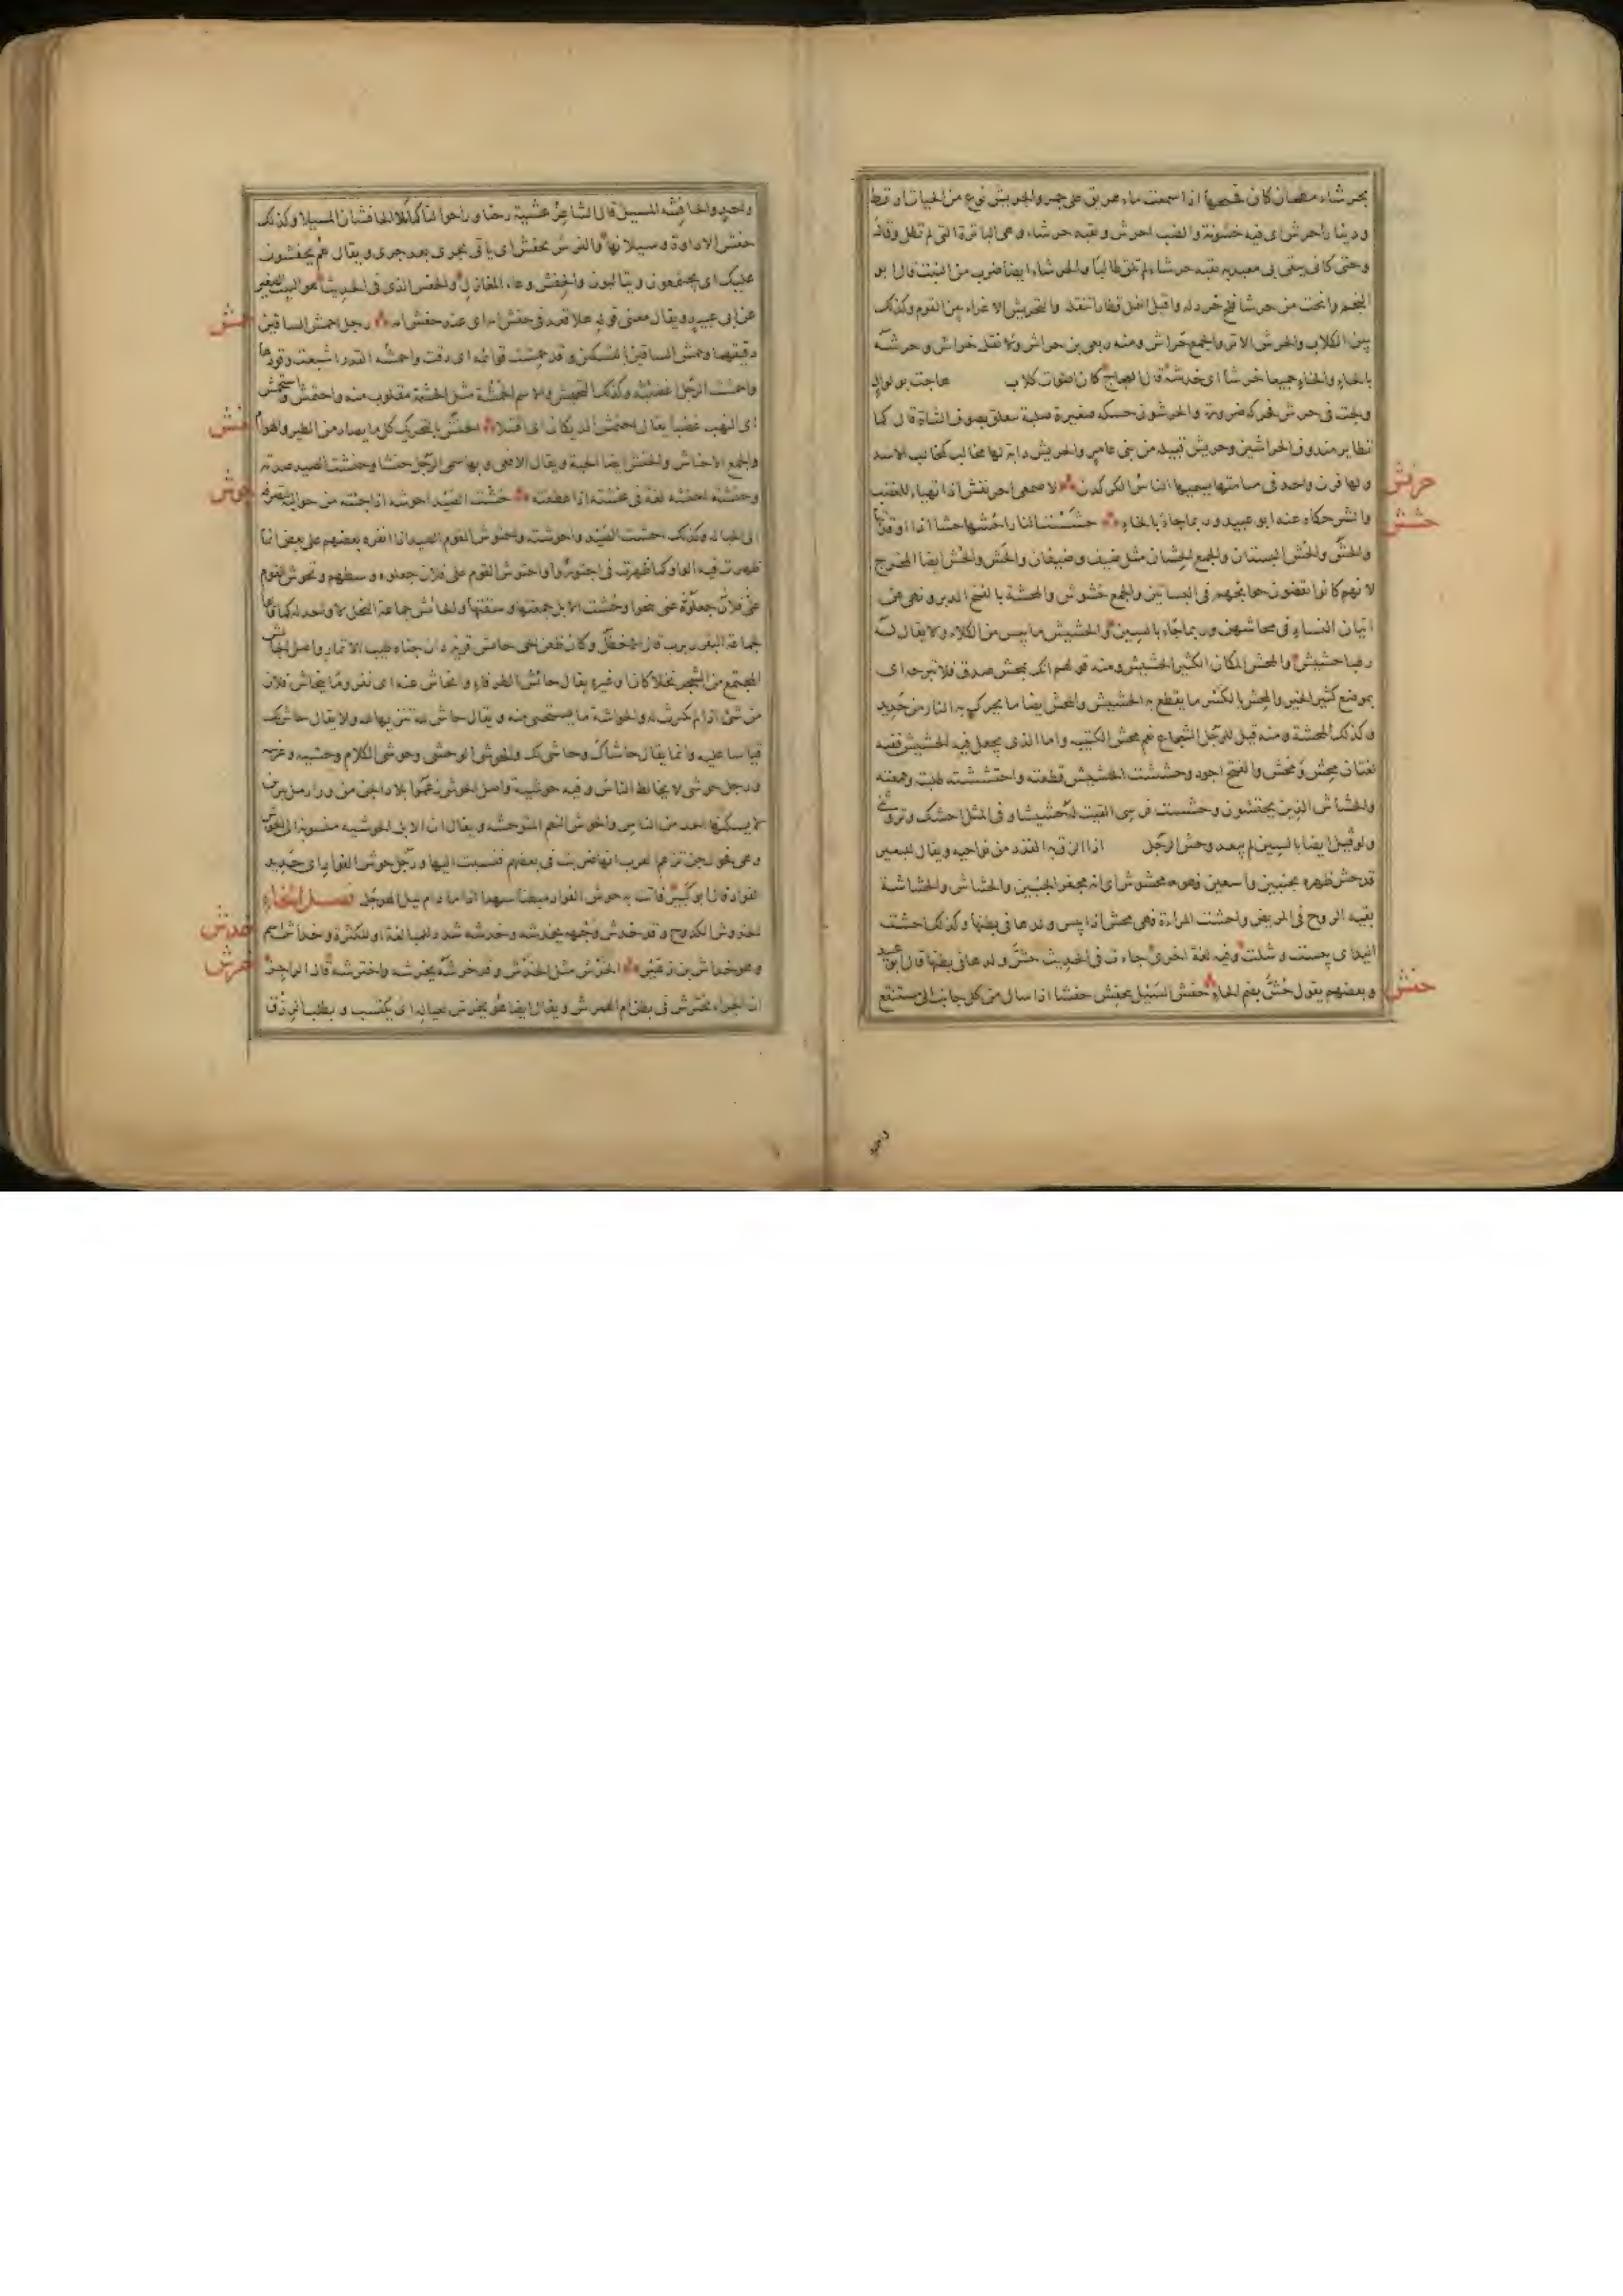 بحرشاء مطحان كان فحيحها اذا سمعت ماء هريق على جمر والحريش نوع من الحيات ارقط
ودينار احرش اى فيه خشونة والضب احرش ونقبة حرشاء وهى الباثرة التى لم تطل وقال
وحتى كانى يتقى بى معبد به نقبة حرشاء لم تلق طاليا والحرشاء ايضا ضرب من النبت قال ابو
النجم وانحت من حرشاء فلج خردله واقبل النمل قطارا تنقله والتحريش الاغراء بين القوم وكذلك
بين الكلاب والحرش الاثر والجمع حراش ومنه ربعى بن حراش ولا تقل خراش وحرشه
بالحاء والخاء جميعا خرشا اى خدشه قال العجاج كان اصوات كلاب
حرنفش
ولها قرن واحد فى هامتها يسميها الناس الكركدن الاصمعى احرنفش اذا تهياء للغضب
حشش
والشر حكاه عنه ابو عبيد وربما جاء بالخاء حششت النار احشها حشا اذا اوقدتها
والحش والحش البستان والجمع الحشان مثل ضيف وضيفان والحش والحش ايضا المخرج
لانهم كانوا يقضون حوائجهم فى البساتين والجمع حشوش والمحشة بالفتح الدبر ونهى عن
اتيان النساء فى محاشهن وربما جاء بالسين والحشيش ما يبس من الكلاء ولا يقال له
رطبا حشيش والمحش المكان الكثير الحشيش ومنه قولهم انك بمحش صدق فلا تبرحه اى
بموضع كثير الخير والمحش بالكسر ما يقطع به الحشيش والمحش ايضا ما يحرك به النار من حديد
وكذلك المحشة ومنه قيل للرجل الشجاع نعم محش الكتيبه واما الذى يجعل فيه الحشيش ففيه
لغتان محش ومحش والفتح اجود وحششت الحشيش قطعته واحتششته طلبته وجمعته
والحشاش الذين يحتشون وحششت فرسى القيت له حشيشا وفى المثل احشك وتروثنى
ولو قيل ايضا بالسين لم يبعد وحش الرجل
قد حش ظهره بجنبين واسعين فهو محشوش اى انه مجفر الجنبين والحشاش والحشاشة
بقية الروح فى المريض واحشت المراءة فهى محش اذا يبس ولدها فى بطنها وكذلك احشت
اليد اى يبست وشلت وفيه لغة اخرى جاءت فى الحديث حش ولدها فى بطنها قال ابو عبيد
حفش
وبعضهم يقول حش بضم الحاء حفش السيل يحفش حفشا اذا سال من كل جانب الى مستنقع
واحد والحافشة المسيل قال الشاعر عشية رحنا وراحوا لنا كما ملاء الحافشات المسيلا وكذلك
حفش الاداوة وسيلانها والفرس يحفش اى ياتى بجرى بعد جرى ويقال هم يحفشون
عليك اى يجتمعون ويتالبون والحفش وعاء المغازل والحفش الذى فى الحديث هو البيت الصغير
حمش
عن ابى عبيد ويقال معنى قوله هلا قعد فى حفش امه اى عند حفش امه رجل احمش الساقين
دقيقهما وحمش الساقين بالتسكين وقد حمشت قوائمه اى دقت واحمشت القدر اشبعت وقودها
واحمشت الرجل اغضبته وكذلك التحميش والاسم الحمشة مثل الحشمة مقلوب منه واحتمش واستحمش
حنش
اى التهب غضبا يقال احتمش الديكان اى اقتتلا الحنش بالتحريك كل ما يصاد من الطير والهوام
والجمع الاحناش والحنش ايضا الحية ويقال الافعى وبها سمى الرجل حنشا وحنشت الصيد صدته
حوش
وحنشته احنشه لغة فى عنشته اذا عطفته حشت الصيد احوشه اذا جئته من حواليه لتصرفه
الى الحباله وكذلك احشت الصيد واحوشته واحتوش القوم الصيد اذا انفره بعضهم على بعض انما
ظهرت فيه الواو كما ظهرت فى اجتوروا واحتوش القوم على فلان جعلوه وسطهم وتحوش القوم
عنى تنحوا وحشت الابل جمعتها وسقتها والحائش جماعة النخل لا واحد له كما قالوا
لجماعة البقر ربرب قال الاخطل وكان ظعن الحى حائش قرية دان جناه طيب الاثمار واصل الحائش
المجتمع من الشجر نخلا كان او غيره يقال حائش الطرفاء وانحاش عنه اى نفر وما ينحاش فلان
من شئ اذا لم يكترث له والحواشة ما يستحيى منه ويقال حاش لله تنزيها له ولا يقال حاش لك
قياسا عليه وانما يقال حاشاك وحاشى لك والحوش الوحشى وحوشى الكلام وحشيه وغريبه
ورجل حوشى لا يخالط الناس وفيه حوشية واصل الحوش زعموا بلاد الجن من وراء رمل يبرين
لا يسكنها احد من الناس والحوش النعم المتوحشه ويقال ان الابل الحوشيه منسوبة الى الحوش
وهى فحول جن تزعم العرب انها ضربت فى بعضهم فنسبت اليها ورجل حوش الفؤاد اى حديد
الفؤاد قال ابو كبير فاتت به حوش الفؤاد مبطنا سهدا اذا ما نام ليل الهوجل فصل الخاء
خدش
الخدوش الكدوح وقد خدش وجهه يخدشه وخدشه شدد للمبالغة او للكثرة وخداش اسم
خرش
وهو خداش بن زهير الخرش مثل الخدش وقد خرشه يخرشه واخترشه قال الراجز
ان الجراء تخترش فى بطن ام الهمرش ويقال ايضا هو يخرش لعياله اى يكتسب ويطلب الرزق